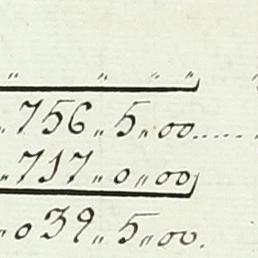 " " " "
"756"5"00.....
"717"0"00
"039"5"00.